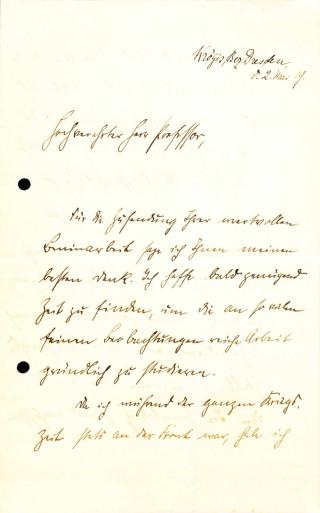 Krögis, Bez. Dresden,
d. 2. Mai 19.
Hochverehrter Herr Professor,
Für die Zusendung Ihrer wertvollen
Seminarbeit sage ich Ihnen meinen
besten Dank. Ich hoffe bald genügend
Zeit zu finden, um die an so vielen
feinen Beobachtungen reiche Arbeit
gründlich zu studieren.
Da ich während der ganzen Kriegs-
zeit stets an der Front war, habe ich